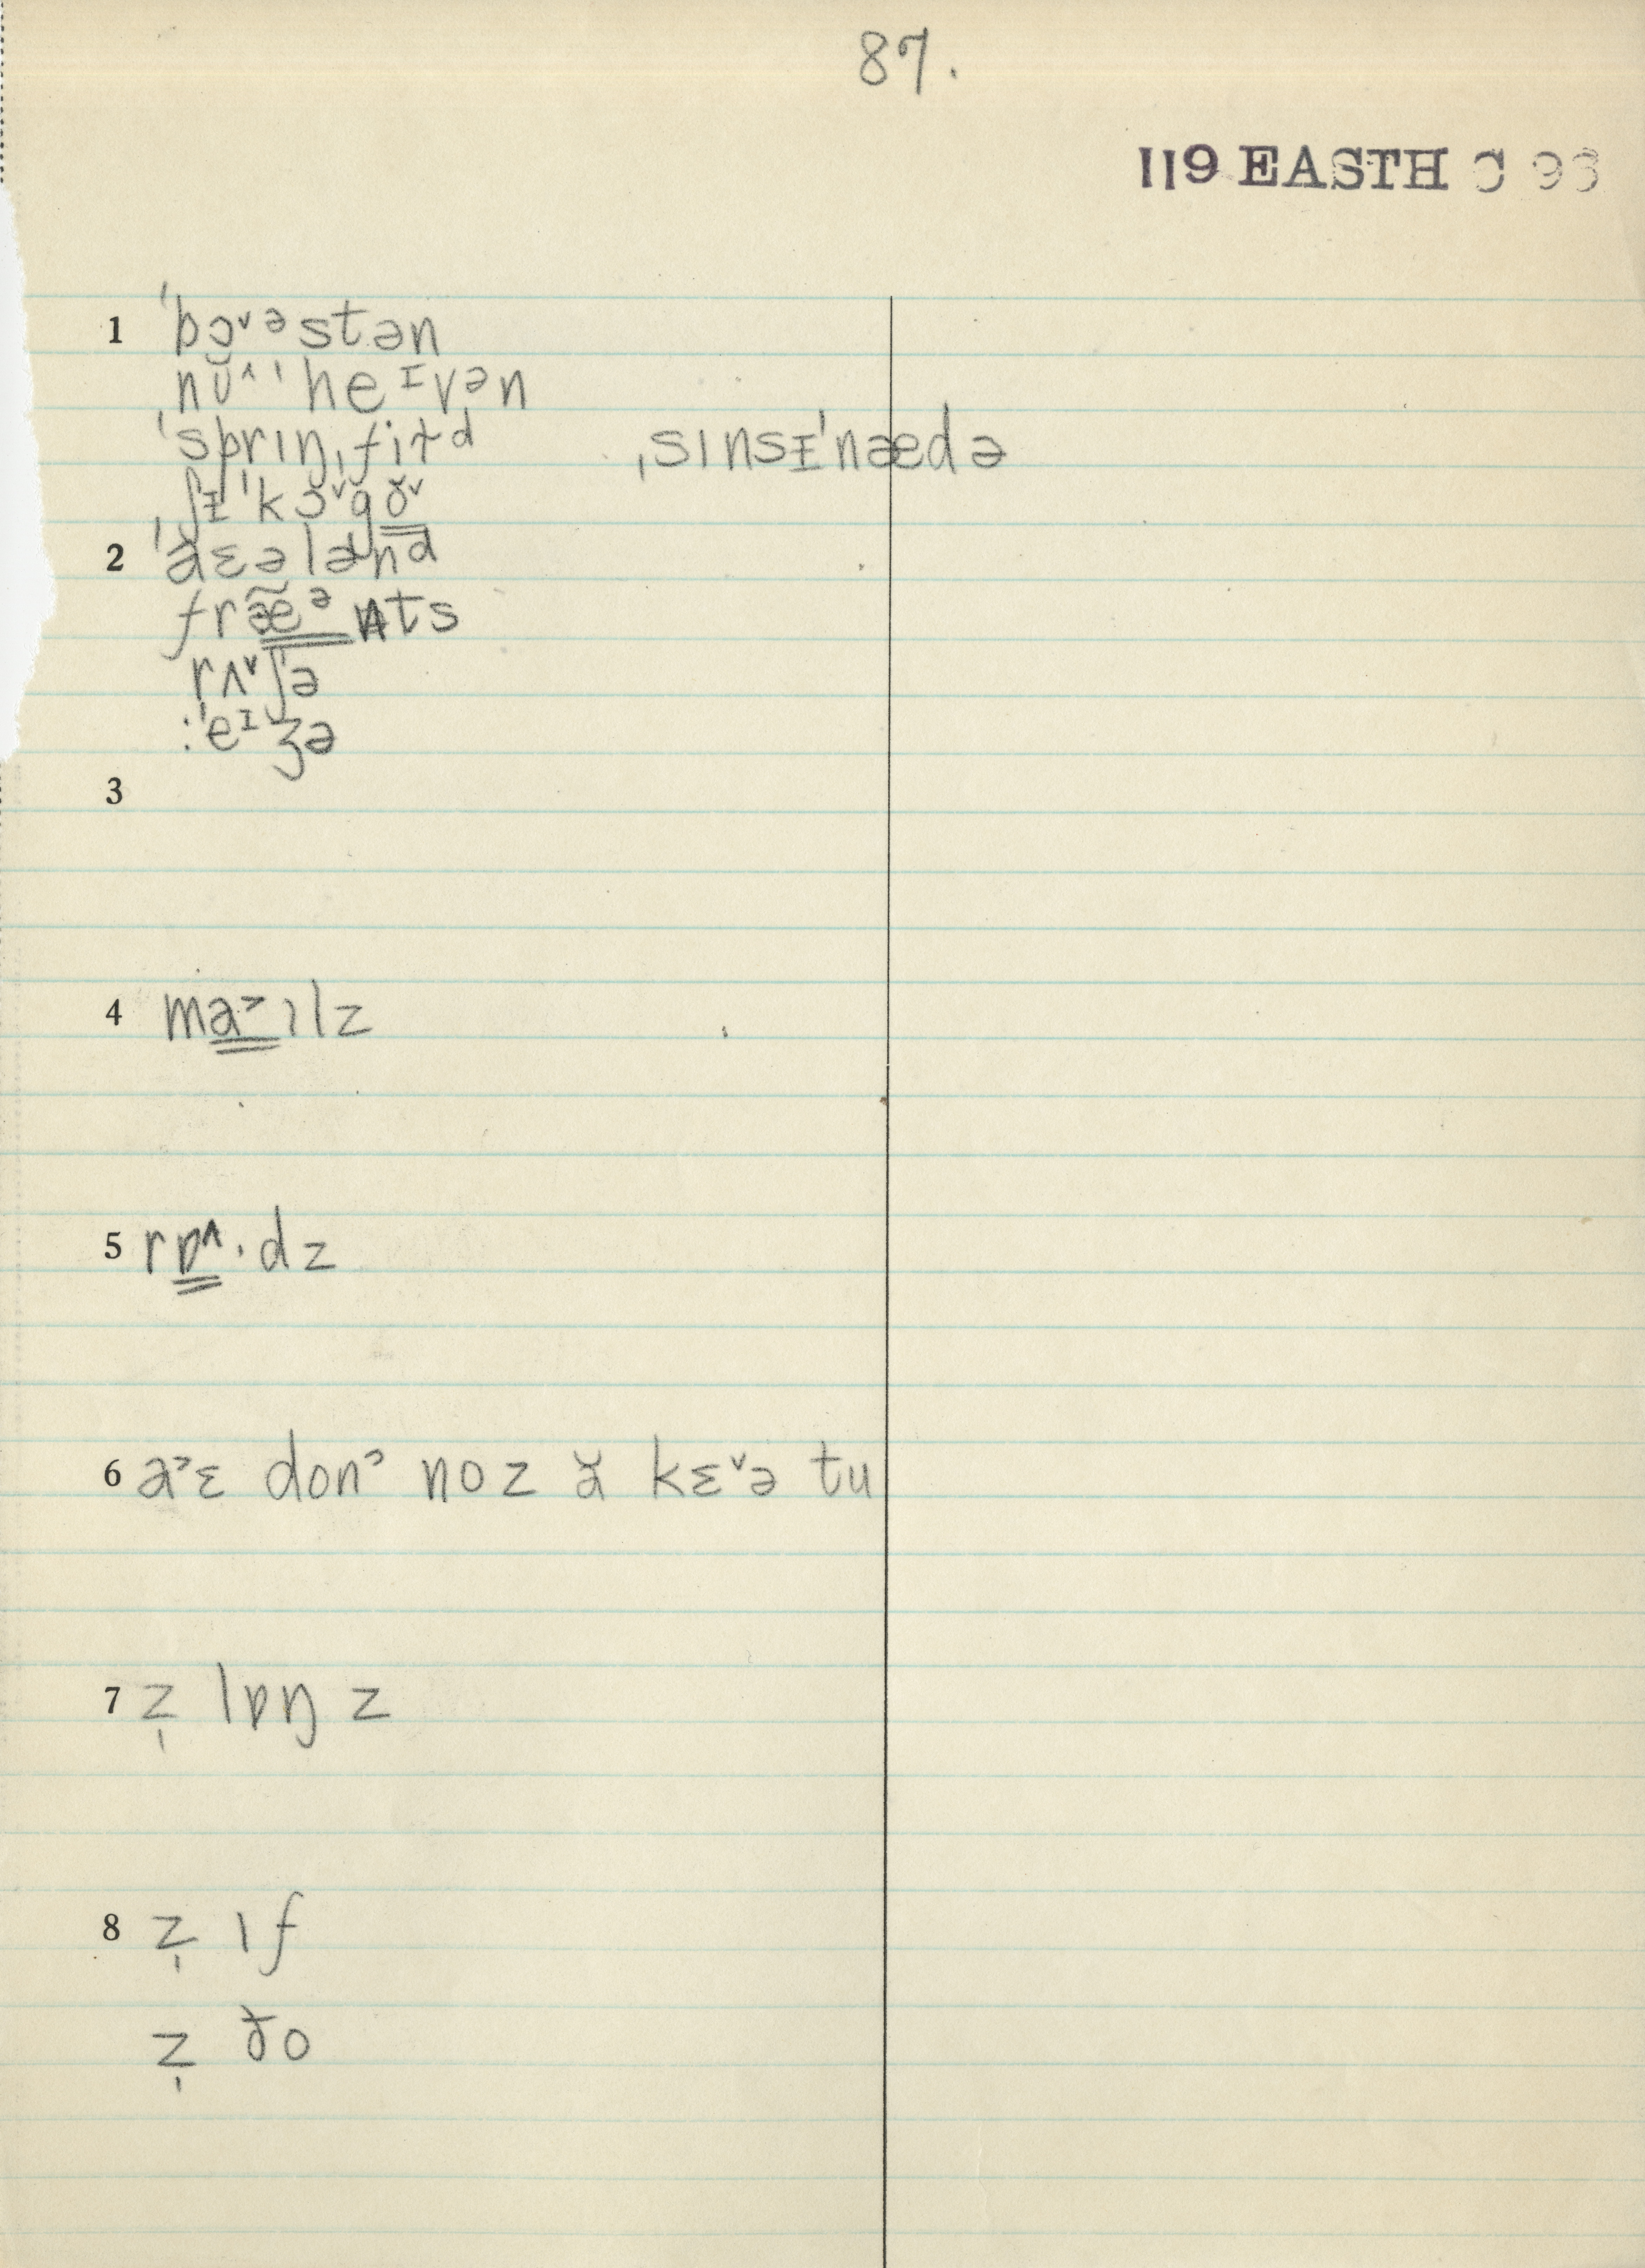 87.
119 EASTH C 93
1 ˈbɔ˅ᵊstən
nŭ^ ˈheᶦvən
ˈsprɪŋˌfiɫd ˌsɪnsᵻˈnædə
ˌʃᵻˈkɔ˅gŏ˅
2 ˈăɛələnd
fræ̃ᵊnts
rʌ˅ʃə
:ˈeᶦʒə
3
4 ma˃ɪlz
5 rɒ^·dz
6 a˃ɛ donˀ noz ă kɛ˅ə tu
7 z̩ lɒŋ z
8 z̩ ɪf
z̩ ðo